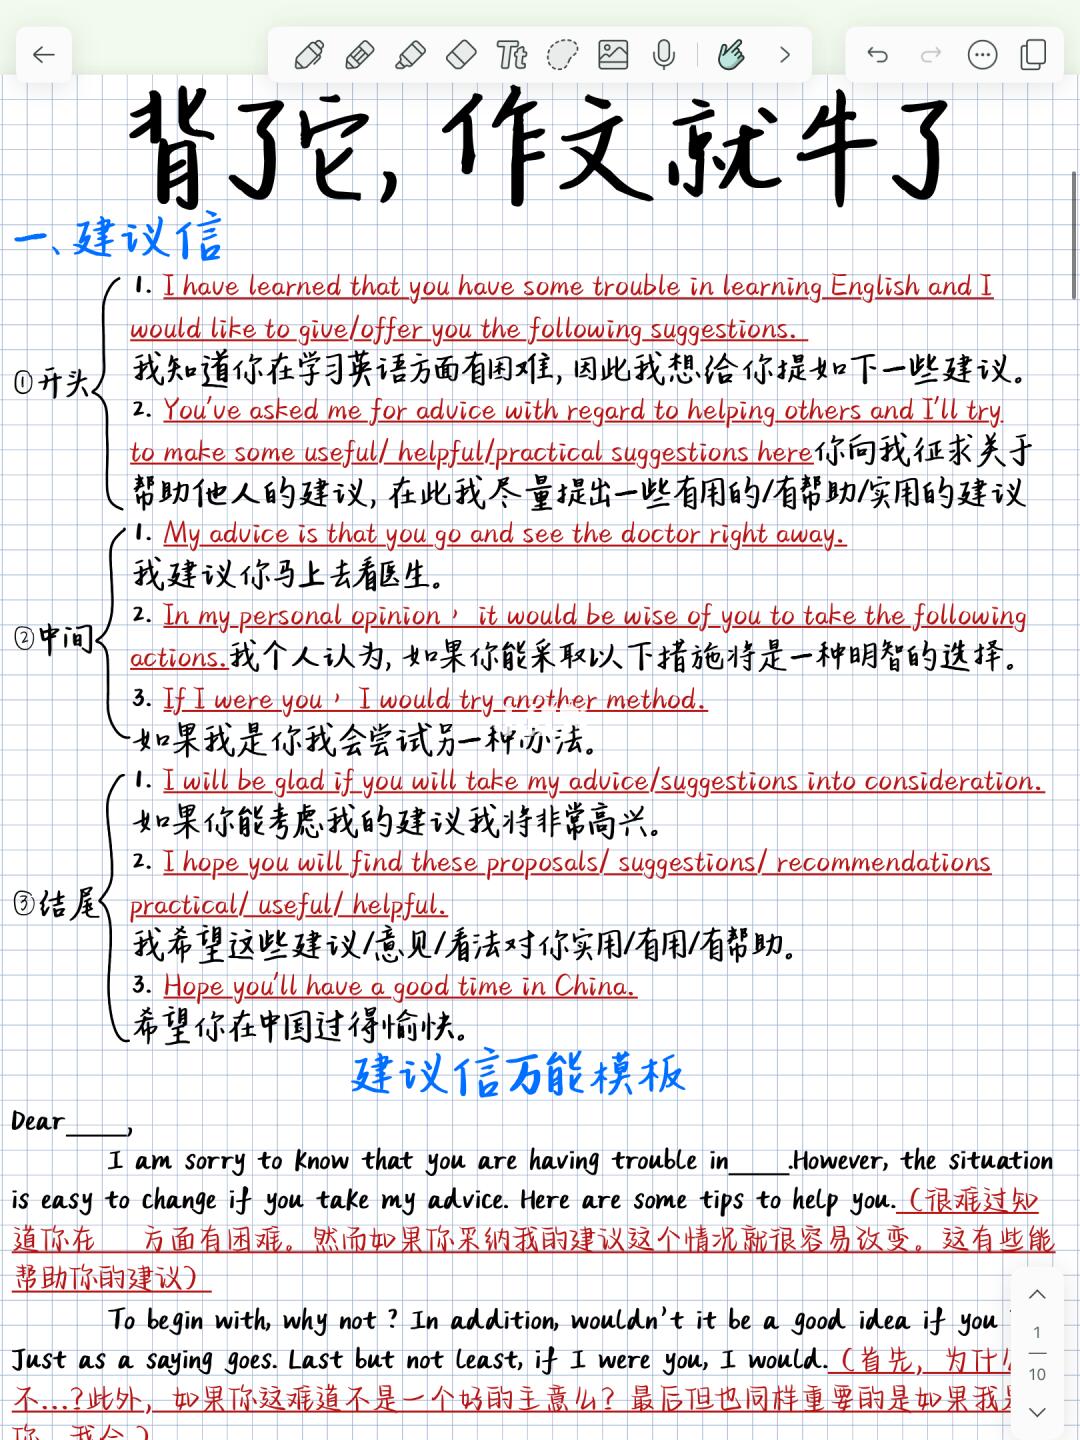 Tt
背了它，作文就牛了
一、建议信
1. I have learned that you have some trouble in learning English and I
would like to give/offer you the following suggestions.
①开头
我知道你在学习英语方面有困难，因此我想给你提如下一些建议。
2. You've asked me for advice with regard to helping others and I'll try
to make some useful/ helpful/practical suggestions here你向我征求关于
帮助他人的建议，在此我尽量提出一些有用的/有帮助/实用的建议
1. My advice is that you go and see the doctor right away.
我建议你马上去看医生。
2. In my personal opinion， it would be wise of you to take the following
②中间
actions.我个人认为，如果你能采取以下措施将是一种明智的选择。
3. If I were you， I would try another method.
如果我是你我会尝试另一种办法。
1. I will be glad if you will take my advice/suggestions into consideration.
如果你能考虑我的建议我将非常高兴。
2. I hope you will find these proposals/ suggestions/ recommendations
③结尾
practical/ useful/ helpful.
我希望这些建议/意见/看法对你实用/有用/有帮助。
3. Hope you'll have a good time in China.
希望你在中国过得愉快。
建议信万能模板
Dear____,
I am sorry to know that you are having trouble in____.However, the situation
is easy to change if you take my advice. Here are some tips to help you.（很难过知
道你在 方面有困难。然而如果你采纳我的建议这个情况就很容易改变。这有些能
帮助你的建议）
To begin with, why not ? In addition, wouldn't it be a good idea if you
Just as a saying goes. Last but not least, if I were you, I would.（首先，为什
不...?此外，如果你这难道不是一个好的主意么？最后但也同样重要的是如果我是
你，我会）
1
10